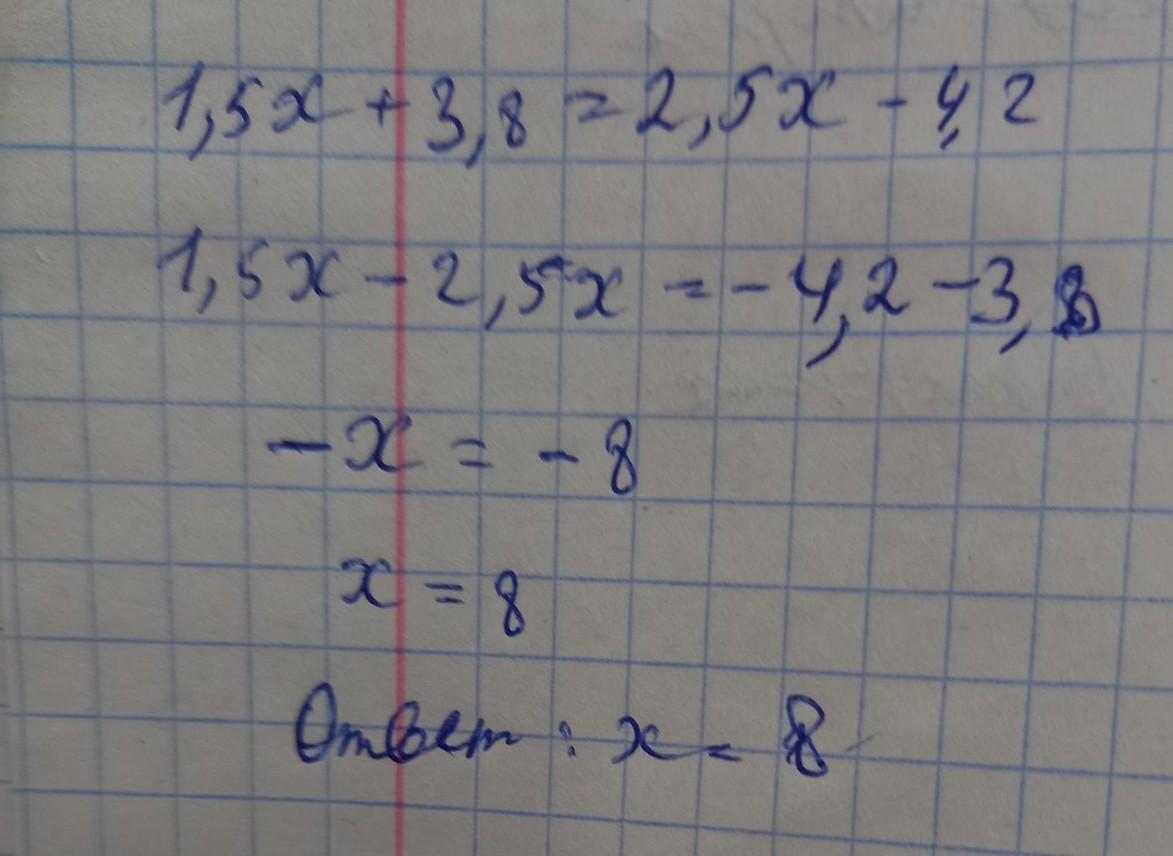 1,5x + 3,8 = 2,5x - 4,2
1,5x - 2,5x = - 4,2 - 3,8
- x = - 8
x = 8
Ответ : x = 8